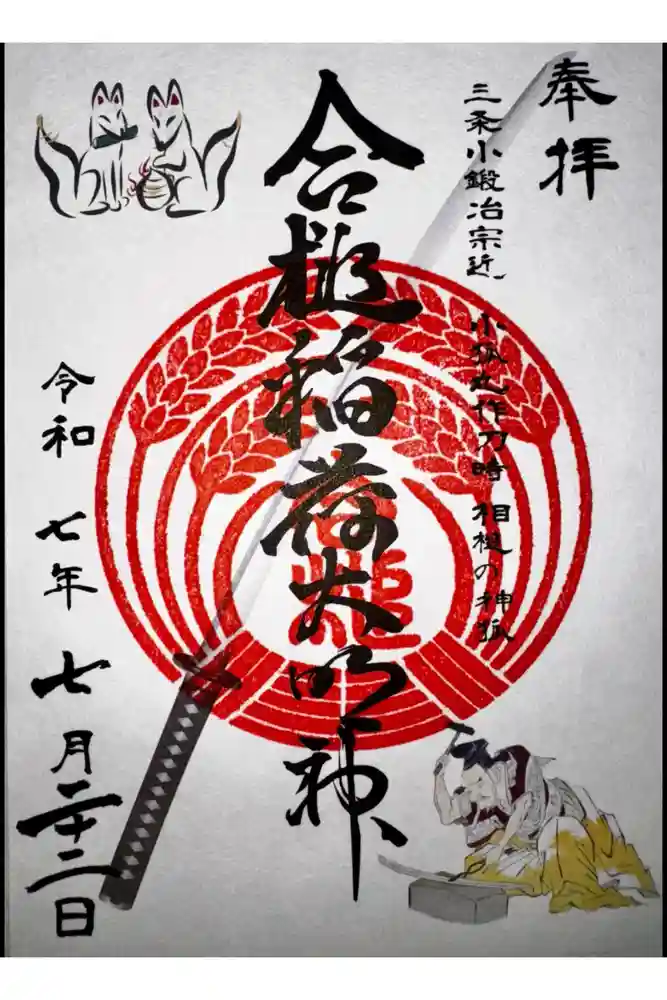 奉拝
三条小鍛冶宗近 小狐丸作刀時 相槌の神狐
合槌稲荷大明神
令和 七年 七月二十二日